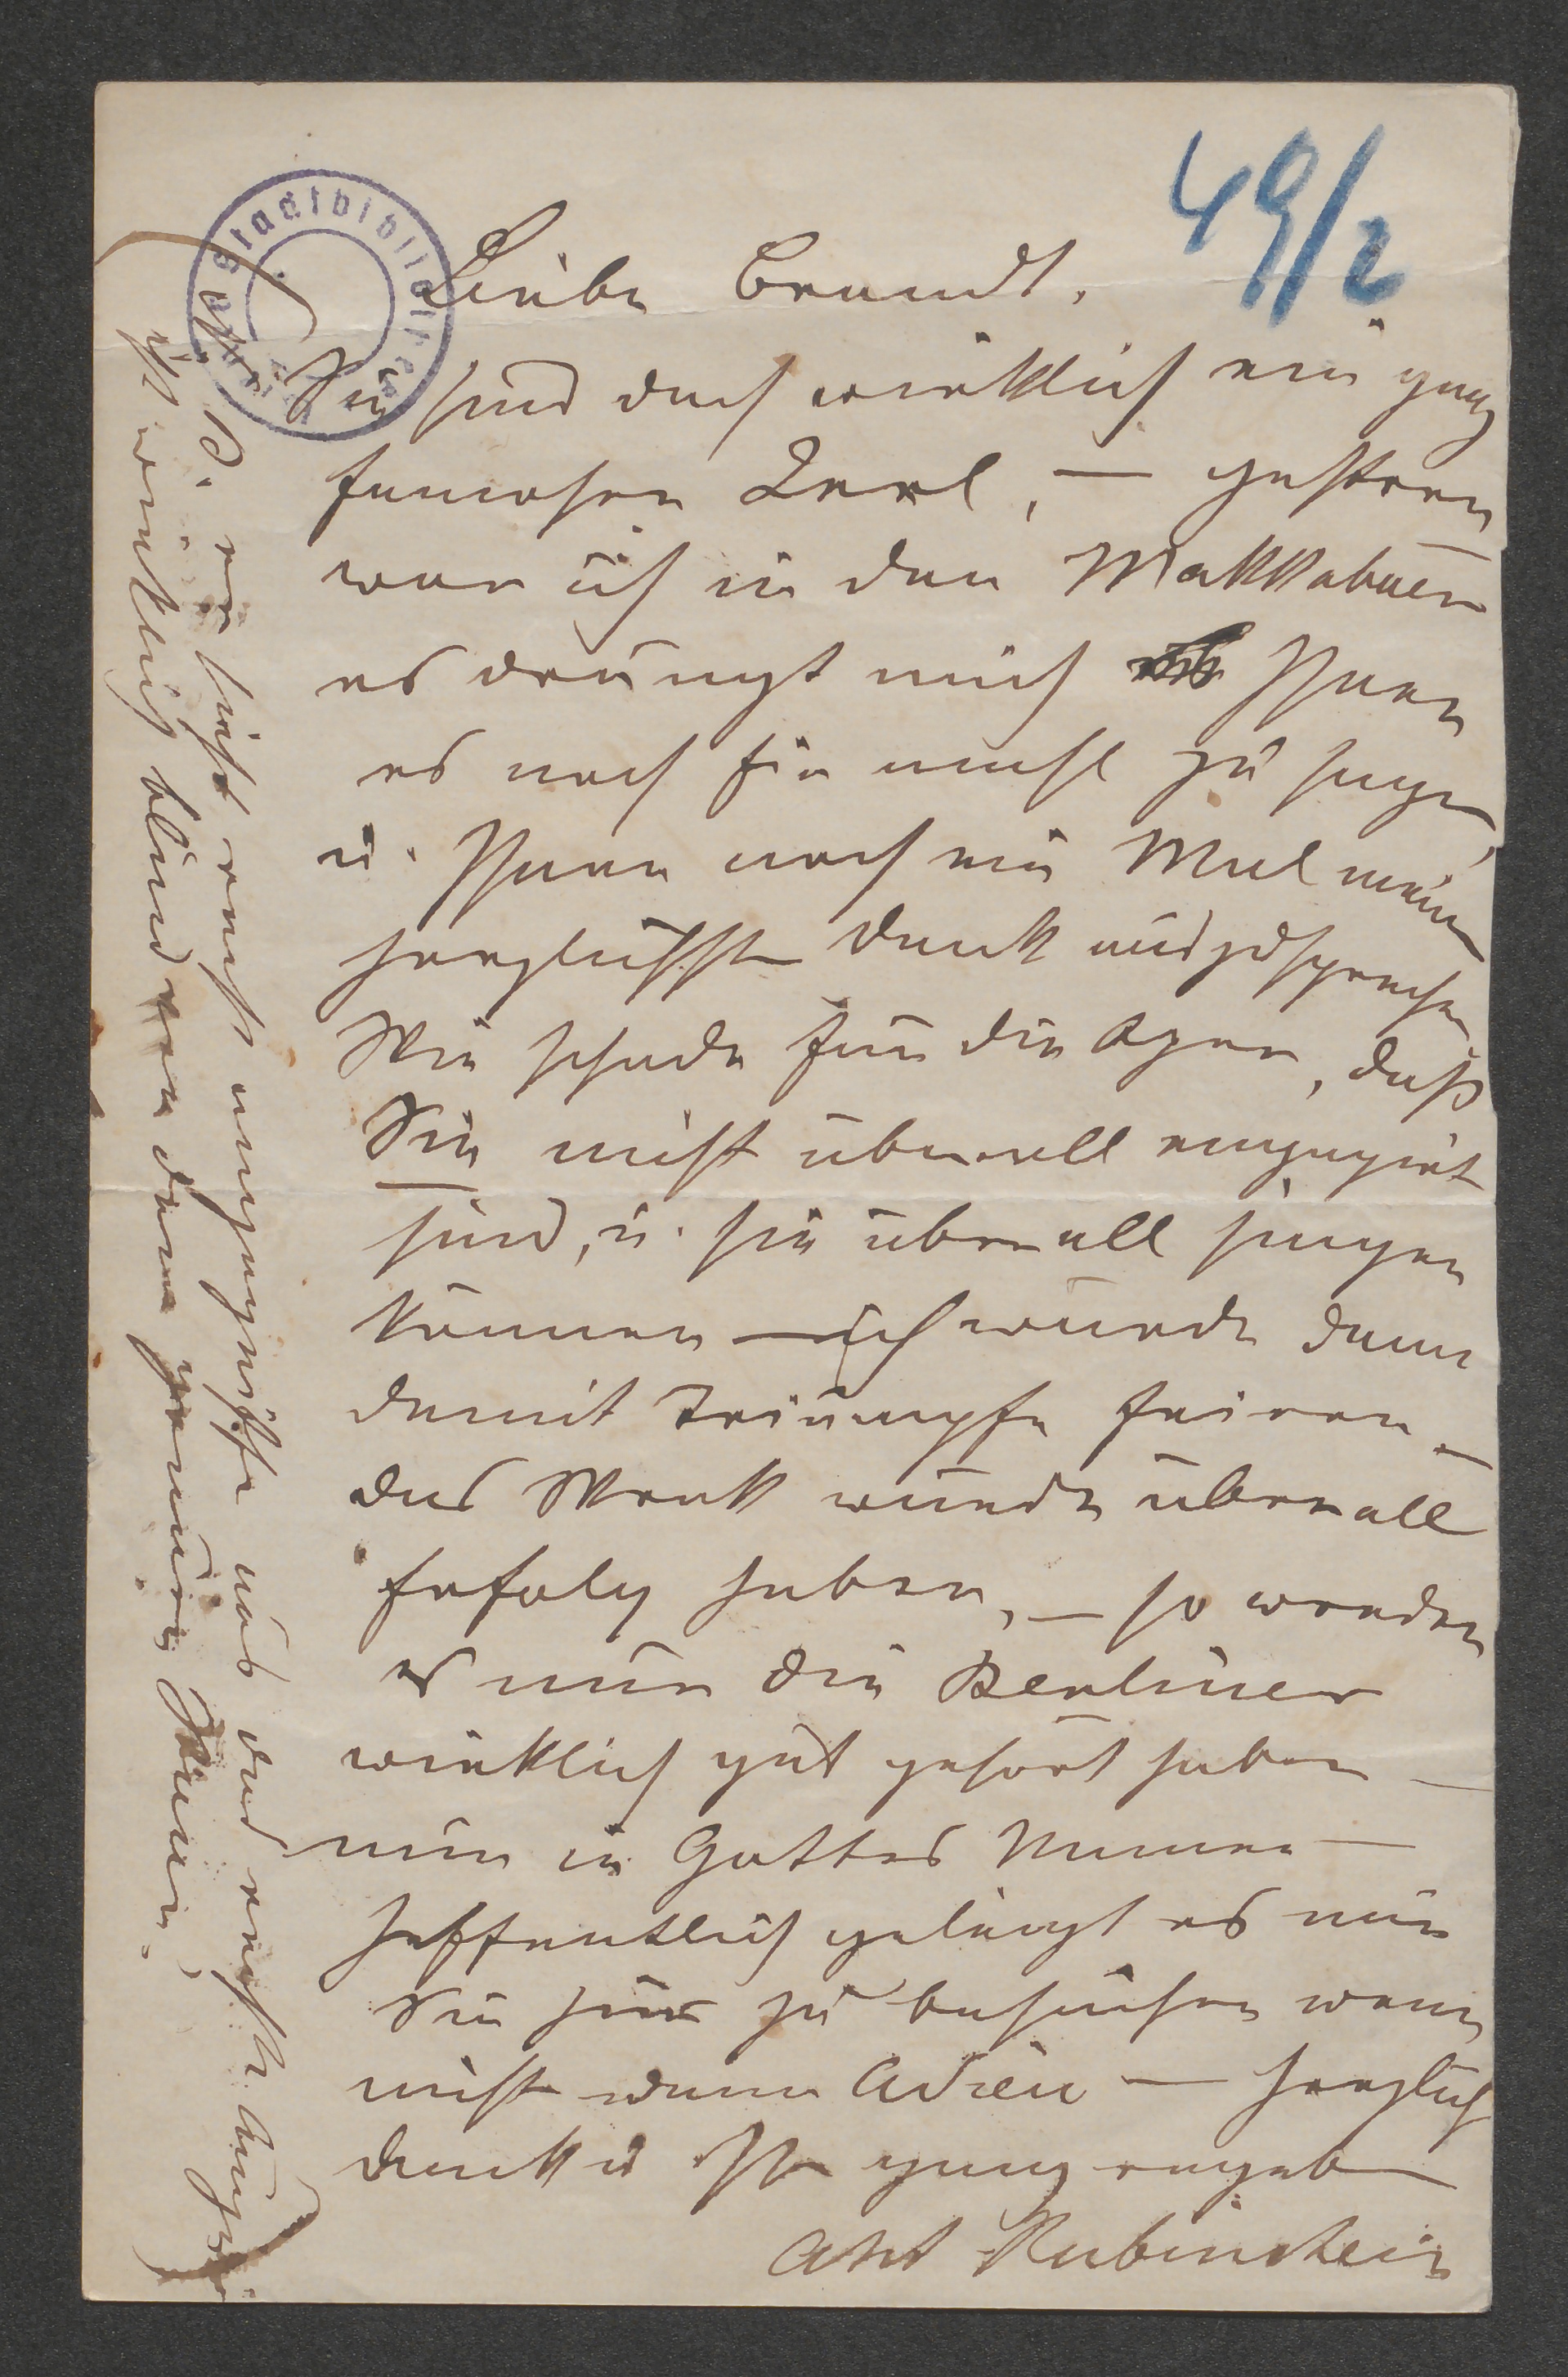 49/2
Stadtbibliothek
Liebe Brandt.
Sie sind doch wirklich ein ganz
famoser Kerl, — gestern
war ich in den Makkabäern
es drängt mich Ihnen
es noch hier mahl zu sagen,
u. Ihnen noch ein Mal meinen
herzlichsten Dank auszusprechen.
Wie schade für die Oper, daß
Sie nicht überall engagirt
sind, u. sie überall singen
können — ich würde dann
damit Triumpfe feiren —
das Werk würde überall
Erfolg haben, — so werden
es nur die Berliner
wirklich gut gehört haben —
nun in Gottes Namen —
hoffentlich gelingt es mir
Sie hier zu besuchen wenn
nicht dann Adieu — herzlich
Dank u Ihr ganz ergeb
Ant Rubinstein
Auge
ich wirklich blind von dem